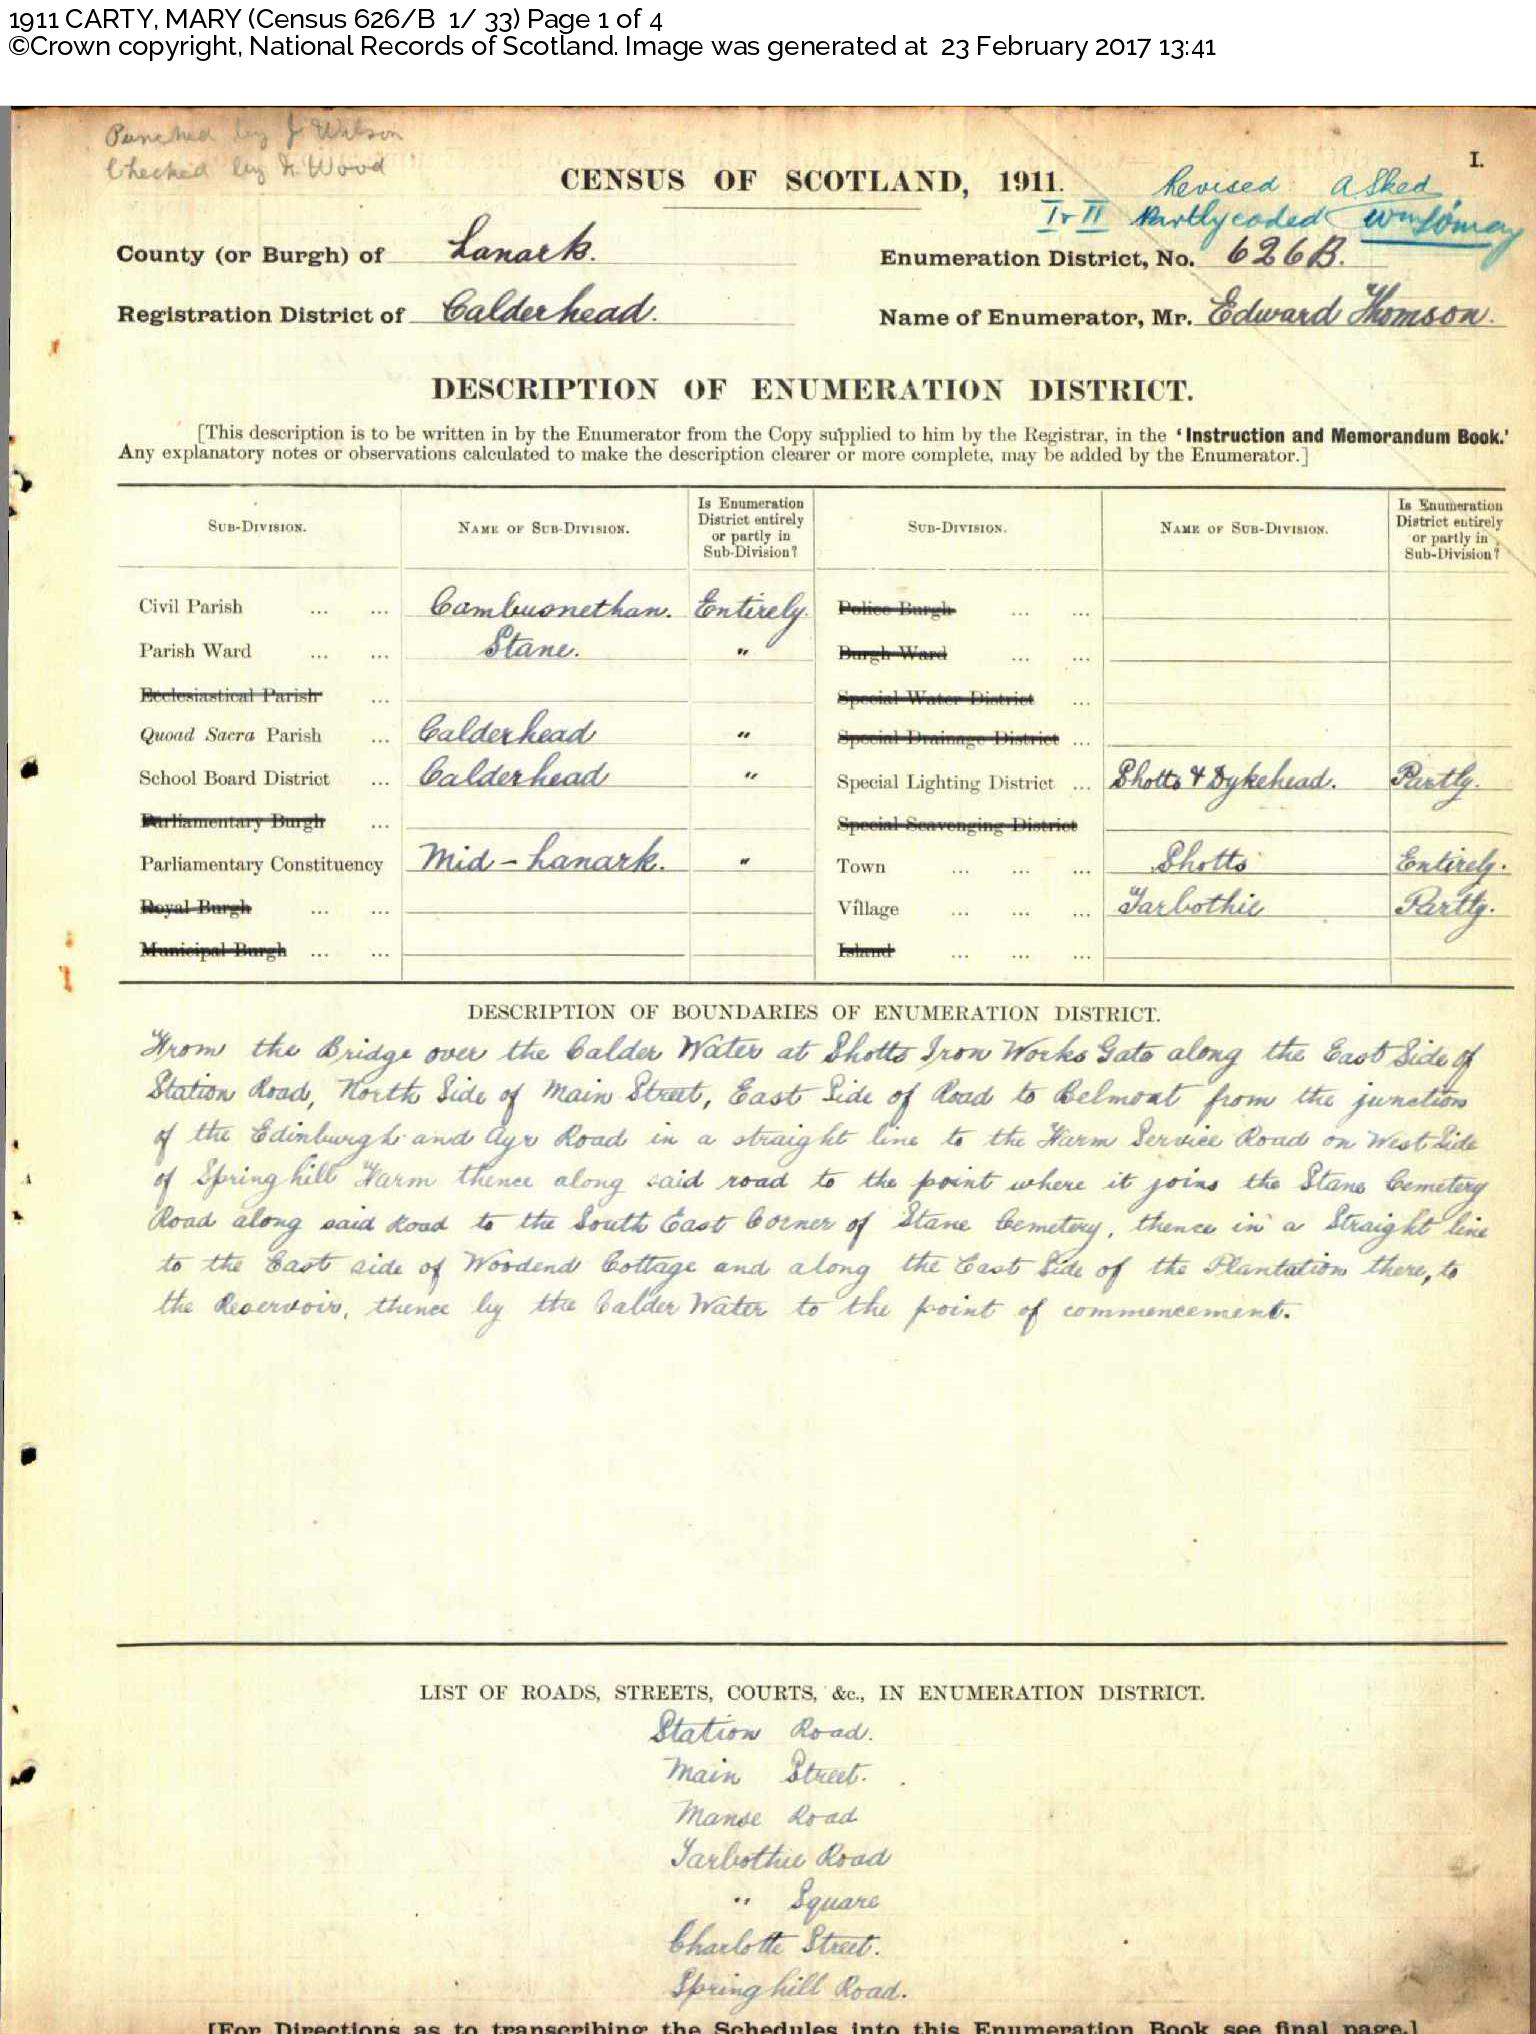 1911 CARTY, MARY (Census 626/B 1/ 33) Page 1 of 4
©Crown copyright, National Records of Scotland. Image was generated at 23 February 2017 13:41
Punched by J Wilson
Checked by Wood
I.
CENSUS OF SCOTLAND, 1911.
Revised Asked
I & II Partly coded Wm
County (or Burgh) of Lanark. Enumeration District, No. 626B.
Registration District of Calderhead. Name of Enumerator, Mr. Edward Thomson.
DESCRIPTION OF ENUMERATION DISTRICT.
[This description is to be written in by the Enumerator from the Copy supplied to him by the Registrar, in the 'Instruction and Memorandum Book.'
Any explanatory notes or observations calculated to make the description clearer or more complete, may be added by the Enumerator.]
SUB-DIVISION. NAME OF SUB-DIVISION. Is Enumeration District entirely or partly in Sub-Division? SUB-DIVISION. NAME OF SUB-DIVISION. Is Enumeration District entirely or partly in Sub-Division?
Civil Parish ... ... Cambusnethan. Entirely. Police Burgh ... ...
Parish Ward ... ... Stane. " Burgh Ward ... ...
Ecclesiastical Parish ... Special Water District ...
Quoad Sacra Parish ... Calderhead " Special Drainage District ...
School Board District ... Calderhead " Special Lighting District ... Shotts & Dykehead. Partly.
Parliamentary Burgh ... Special Scavenging District
Parliamentary Constituency Mid-Lanark. " Town ... ... ... Shotts Entirely.
Royal Burgh ... ... Village ... ... ... Tarbothie Partly.
Municipal Burgh ... ... Island ... ... ...
DESCRIPTION OF BOUNDARIES OF ENUMERATION DISTRICT.
From the Bridge over the Calder Water at Shotts Iron Works Gate along the East Side of
Station Road, North Side of Main Street, East Side of Road to Belmont from the junction
of the Edinburgh and Ayr Road in a straight line to the Farm Service Road on West Side
of Springhill Farm thence along said road to the point where it joins the Stane Cemetery
Road along said Road to the South East Corner of Stane Cemetery, thence in a Straight line
to the East side of Woodend Cottage and along the East Side of the Plantation there, to
the Reservoir, thence by the Calder Water to the point of commencement.
LIST OF ROADS, STREETS, COURTS, &c., IN ENUMERATION DISTRICT.
Station Road.
Main Street.
Manse Road
Tarbothie Road
" Square
Charlotte Street.
Springhill Road.
[For Directions as to transcribing the Schedules into this Enumeration Book see final page.]